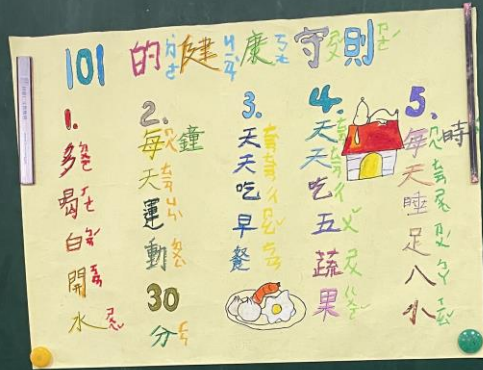 101的健康守則
1.多喝白開水
2.每天運動30分鐘
3.天天吃早餐
4.天天吃五蔬果
5.每天睡足八小時